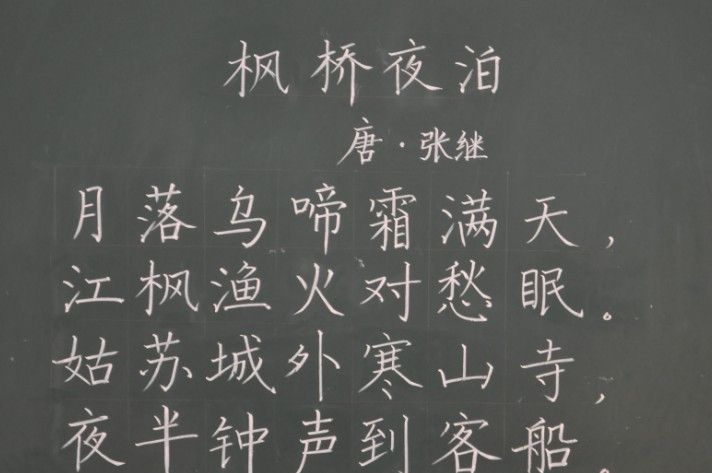 枫桥夜泊
唐·张继
月落乌啼霜满天，
江枫渔火对愁眠。
姑苏城外寒山寺，
夜半钟声到客船。